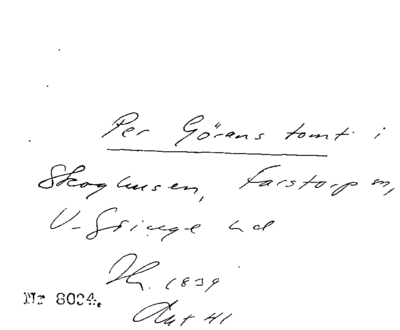 Per Görans tomt i
Skoghusen, Farstorp sn,
V. Göinge hd
Th. 1839
Nr 8004.
Ant 41